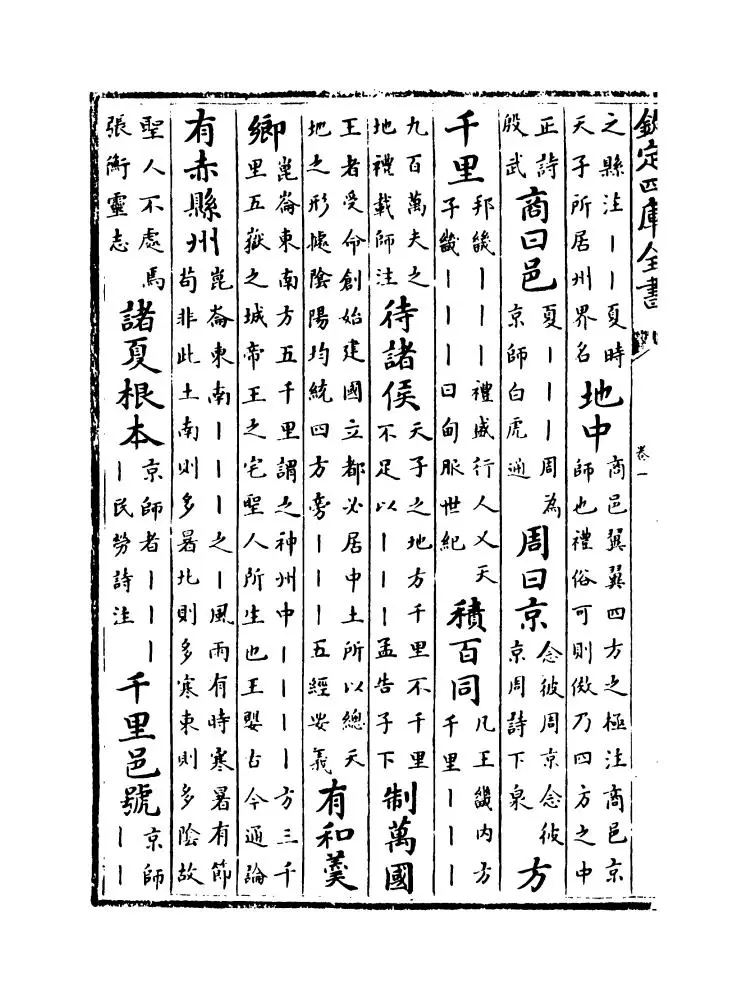 欽定四庫全書
卷一
之縣注丨丨夏時天子所居州界名地中商邑翼翼四方之極注商邑京師也禮俗可則倣乃四方之中
正詩殷武商曰邑夏丨丨丨周為京師白虎通周曰京念彼周京念彼京周詩下泉方
千里邦畿丨丨丨禮盛行人又天子畿丨丨丨丨曰甸服世紀積百同凡王畿内方千里丨丨丨
九百萬夫之地禮載師注待諸侯天子之地方千里不千里不足以丨丨丨孟告子下制萬國
王者受命創始建國立都必居中土所以總天地之形據陰陽均統四方旁丨丨丨五經要義有和羹
鄉崑崙東南方五千里謂之神州中丨丨丨丨方三千里五嶽之城帝王之宅聖人所生也王嬰古今通論
有赤縣州崑崙東南丨丨丨之丨風雨有時寒暑有節苟非此土南則多暑北則多寒東則多陰故
聖人不處焉張衡靈志諸夏根本京師者丨丨丨丨民勞詩注千里邑號京師丨丨